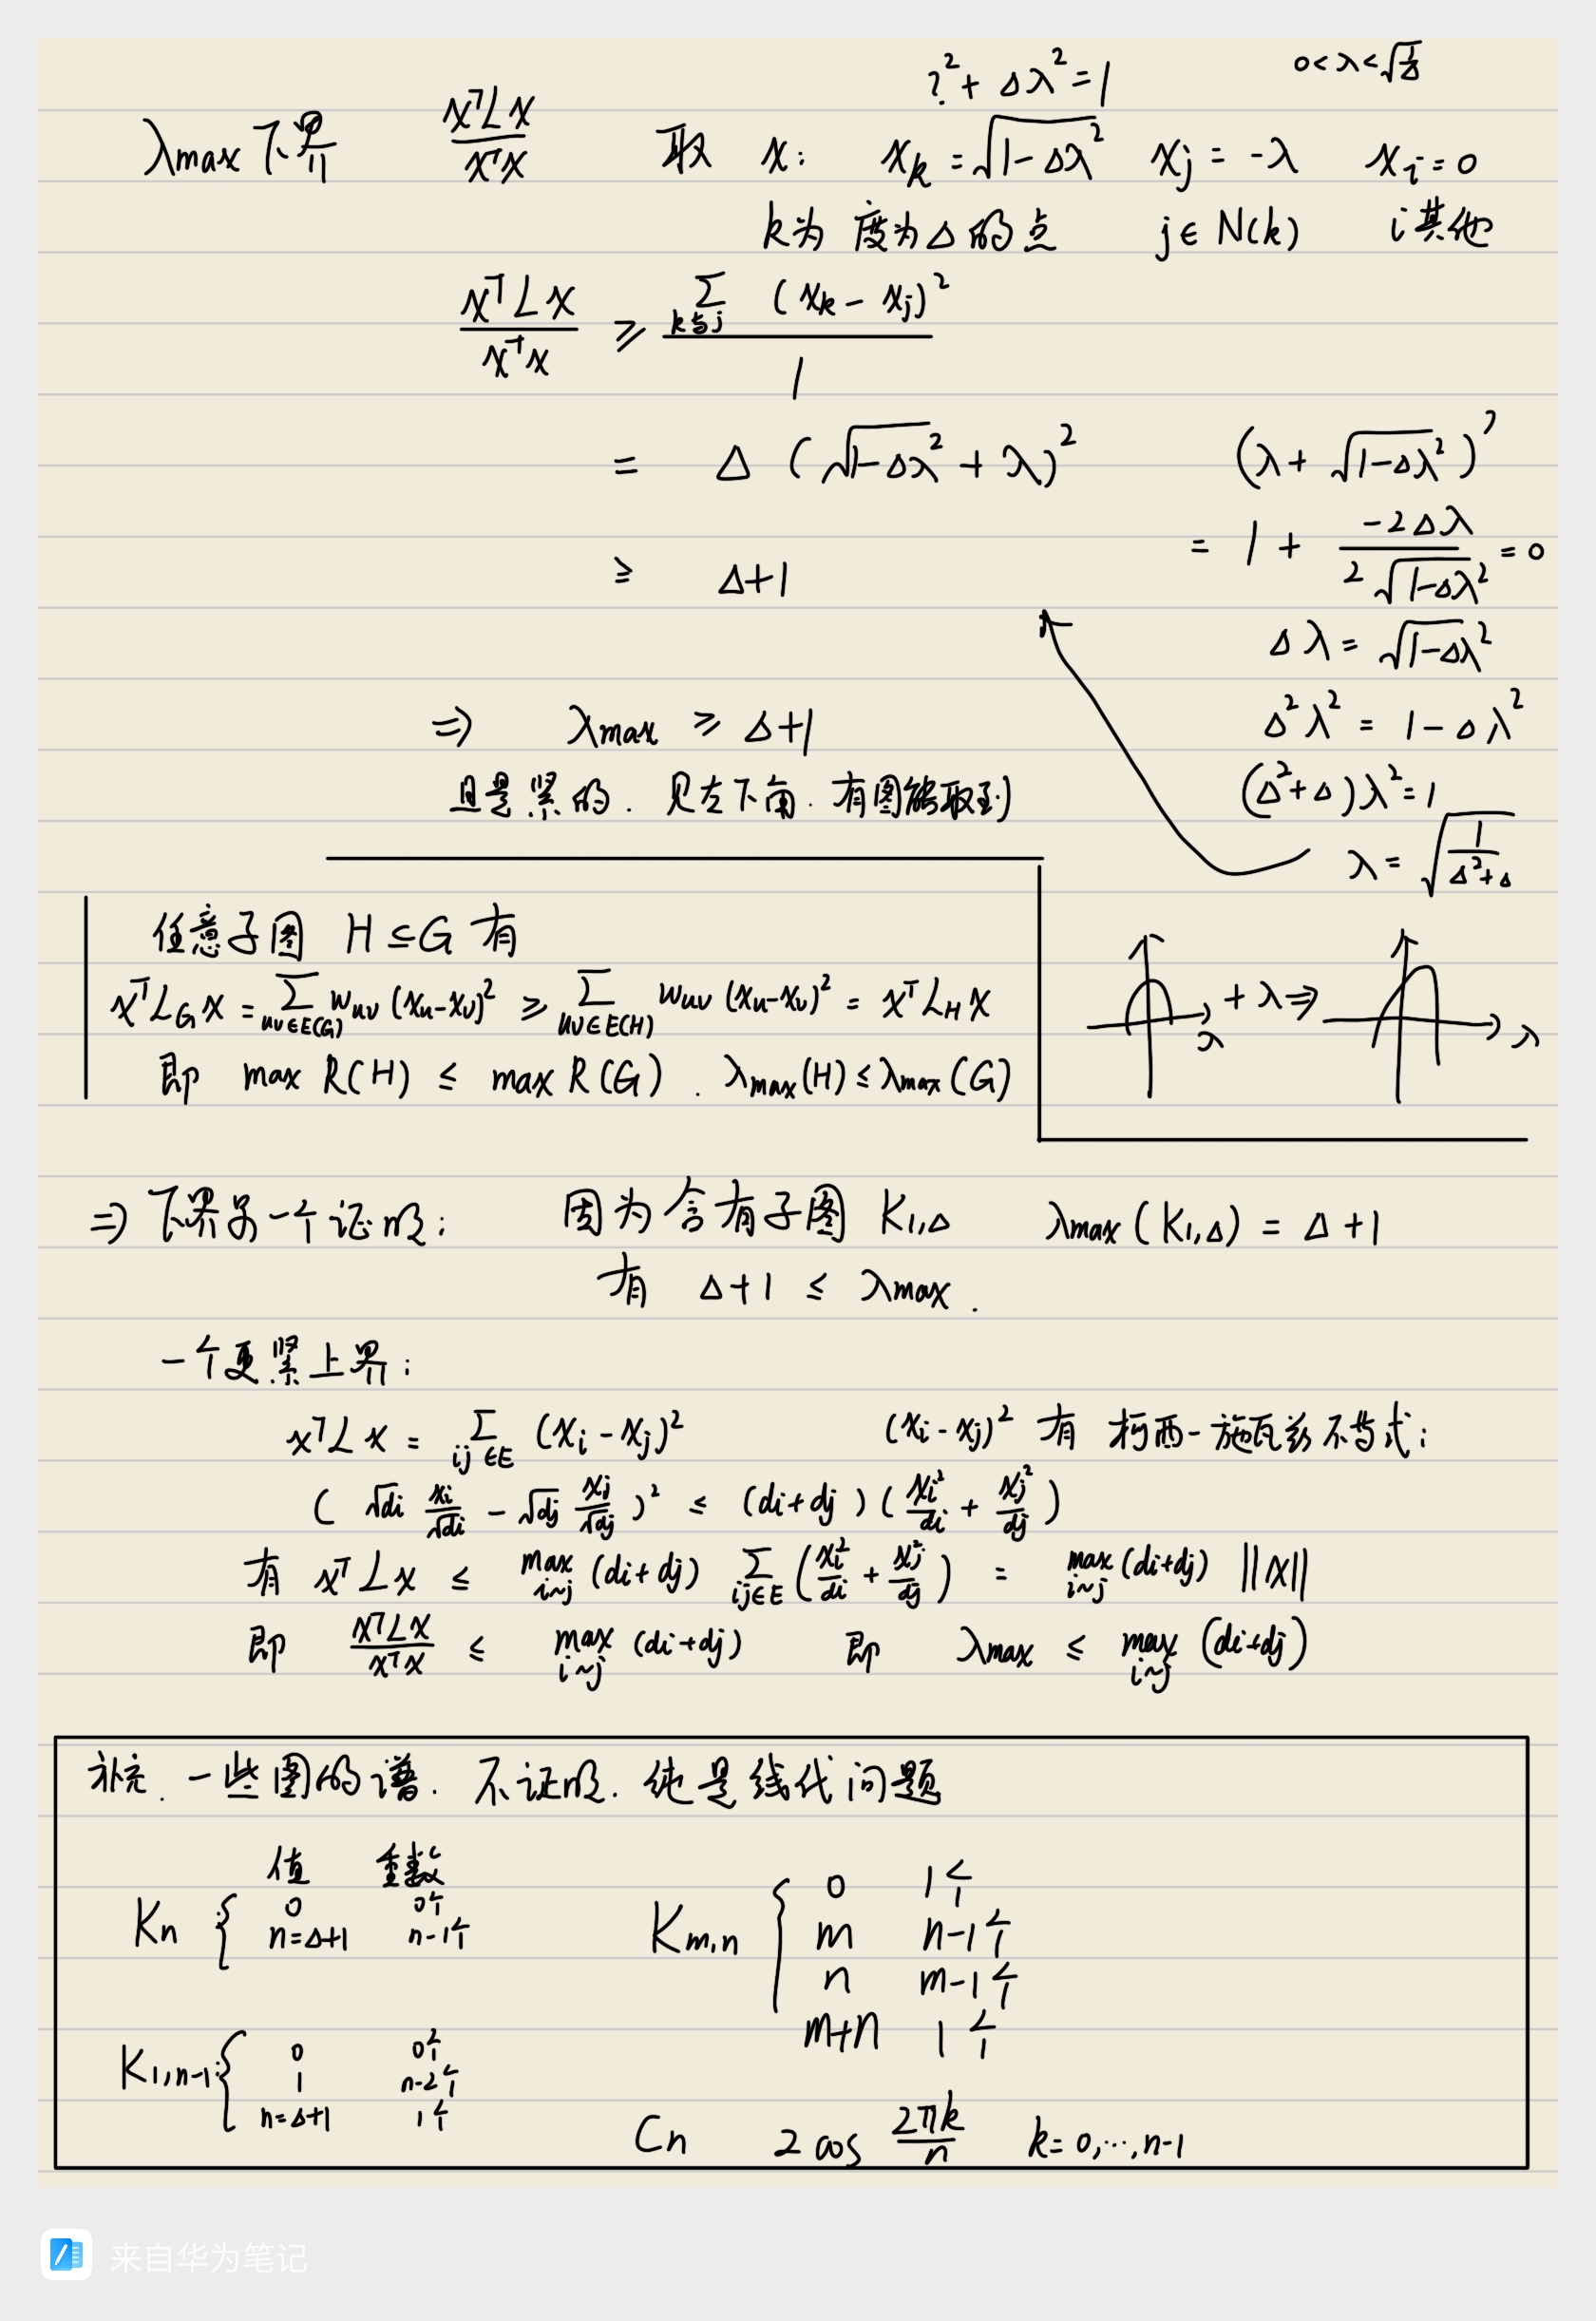 ?² + Δλ² = 1    0 < λ < √(1/Δ)
λmax 下界    xᵀLx / xᵀx    取 x:  x_k = √(1-Δλ²)  x_j = -λ  x_i = 0
k为 度为Δ的点    j ∈ N(k)    i 其他
xᵀLx / xᵀx ≥ Σ_{k与j} (x_k - x_j)² / 1
= Δ (√(1-Δλ²) + λ)²
≥ Δ+1
⇒ λmax ≥ Δ+1
且是紧的. 见左下角. 有图能取到
(λ + √(1-Δλ²))'
= 1 + (-2Δλ) / (2√(1-Δλ²)) = 0
Δλ = √(1-Δλ²)
Δ²λ² = 1 - Δλ²
(Δ²+Δ)λ² = 1
λ = √(1/(Δ²+Δ))
λ  + λ ⇒  λ
任意子图 H ⊆ G 有
xᵀL_G x = Σ_{uv∈E(G)} w_uv (x_u - x_v)² ≥ Σ_{uv∈E(H)} w_uv (x_u - x_v)² = xᵀL_H x
即 max R(H) ≤ max R(G) . λmax(H) ≤ λmax(G)
⇒ 下界另一个证明:  因为含有子图 K_{1,Δ}  λmax(K_{1,Δ}) = Δ+1
有 Δ+1 ≤ λmax .
一个更紧上界:
xᵀLx = Σ_{ij∈E} (x_i - x_j)²    (x_i - x_j)² 有 柯西-施瓦兹不等式:
(√di x_i/√di - √dj x_j/√dj)² ≤ (di+dj)(x_i²/di + x_j²/dj)
有 xᵀLx ≤ max_{i~j} (di+dj) Σ_{ij∈E} (x_i²/di + x_j²/dj) = max_{i~j} (di+dj) ||x||
即 xᵀLx / xᵀx ≤ max_{i~j} (di+dj)  即  λmax ≤ max_{i~j} (di+dj)
补充. 一些图的谱. 不证明. 纯是线代问题
值  重数
Kn {  0  0个
n=Δ+1  n-1个
K_{1,n-1}: {  0  0个
1  n-2个
n=Δ+1  1个
K_{m,n} {  0  1个
m  n-1个
n  m-1个
m+n  1个
Cn  2 cos 2πk/n  k=0,…,n-1
来自华为笔记